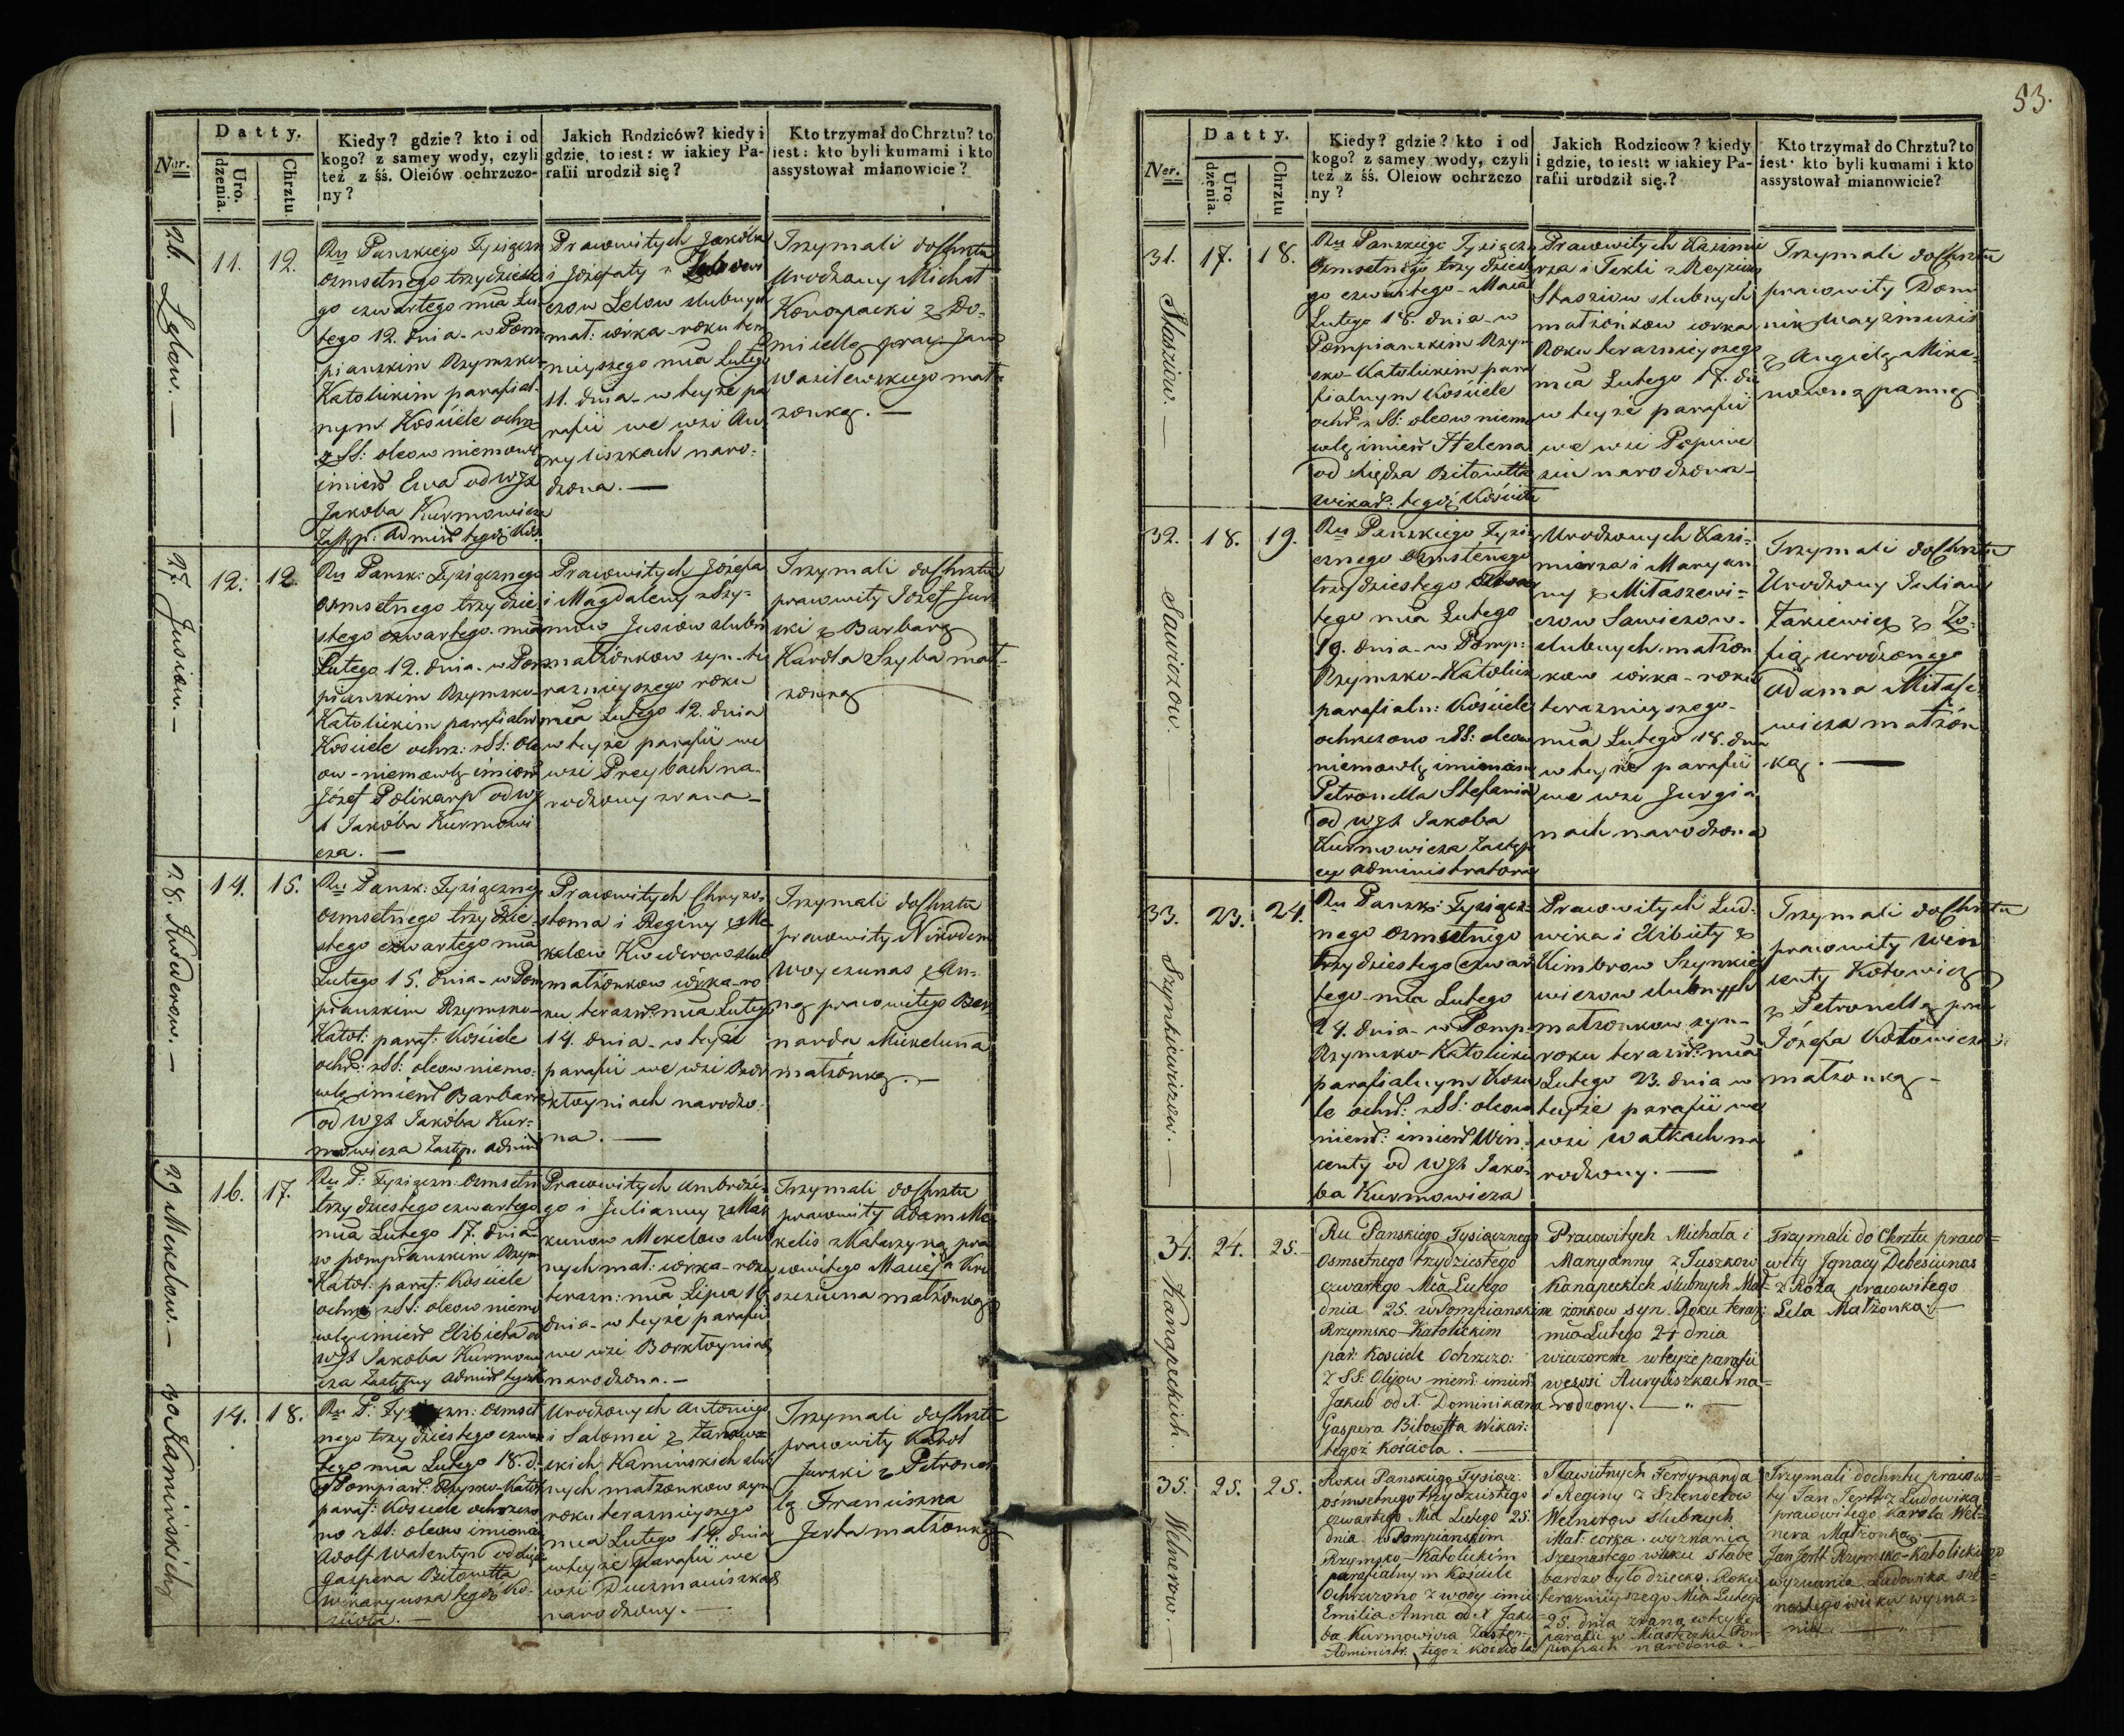 53.
Datty.
Ner.
Uro-
dzenia.
Chrztu
Kiedy? gdzie? kto i od
kogo? z samey wody, czyli
też z śś. Oleiów ochrzczo-
ny?
Jakich Rodziców? kiedy i
gdzie, to iest: w iakiey Pa-
rafii urodził się?
Kto trzymał do Chrztu? to
iest: kto byli kumami i kto
assystował mianowicie?
26.
11.
12.
Ru Panskiego Tysiączn
osmsetnego trzydzieste
go czwartego mca Lu-
tego 12. dnia w Pom
pianskim Rzymsko
Katolickim parafial-
nym Kościele ochrz
z SS: oleow niemowl
imień Ewa od wyż
Jakoba Kurmowicza
Zastęp: Admin tegoż Koś
Prawowitych Jakóba
i Józefaty z
Lelow slubnych
mat: córka roku ter
nieyszego mca Lutego
11. dnia w teyże pa
rafii we wsi Au
ryliszkach naro-
dzona.
Trzymali do Chrztu
Urodzony Michał
Konopacki z Do-
micellą praw Jana
Wasilewskiego mał
zonką.
27. Jusiow.
12.
12.
Ru Pansk: Tysiącznego
osmsetnego trzydzie-
stego czwartego mca
Lutego 12. dnia w Pom
pianskim Rzymsko
Katolickim parafialn
Kościele ochrz: z SS: Ole
ow niemowlę imień
Józef Polikarp od wyż
i Jakóba Kurmowi
cza.
Prawowitych Józefa
i Magdaleny z Szy-
mow Jusiow slubn
małżonkow syn te
raznieyszego roku
mca Lutego 12. dnia
w teyże parafii we
wsi Preybach na-
rodzony zrana
Trzymali do Chrztu
prawowity Józef Jur
ski z Barbarą
Karola Szyba mał-
zonką
28. Kwederow.
14.
15.
Ru Pansk: Tysiączneg
osmsetnego trzydzie-
stego czwartego mca
Lutego 15. dnia w Pom
pianskim Rzymsko-
Katol: paraf: Kościele
ochr: z SS: oleow niemo-
wlę imień Barbara
od wyż Jakóba Kur-
mowicza Zastęp. Admin
Prawowitych Chryzo-
stoma i Reginy z Me
kelow Kwederow slub
małżonkow córka ro
ku terazn: mca Lutego
14. dnia w teyże
parafii we wsi Bor
ktoyniach narodzo-
na.
Trzymali do Chrztu
prawowity Nikodem
Woyczunas z An-
ną prawowitego Ber
narda Mikeluna
małżonką.
29 Mekelow.
16.
17.
Ru P: Tysiączn: osmsetn
trzydziestego czwartego
mca Lutego 17. dnia
w pompianskim Rzym
Katol: paraf: Kościele
ochrz z SS: oleow niemo
wlę imień Elżbieta od
wyż Jakoba Kurmowi
cza Zastępcy Admin tegoż
Prawowitych Ambroże-
go i Julianny z Mar
kunow Mekelow slub
nych mat: córka roku
terazn: mca Lipca 16
dnia w teyże parafii
we wsi Borktoyniach
narodzona.
Trzymali do Chrztu
prawowity Adam Me
kelis z Katarzyną pra
wowitego Macieja Kru
małżonką
30 Kaminskich
14.
18.
Ru P: Tysiączn: osmset
nego trzydziestego czwar
tego mca Lutego 18. d.
w Pompian: Rzymsko-Katol
paraf: Kościele ochrzczo
no z SS: oleow imiona
Adolf Walentyn od xiędza
Gaspera Bitowtta
Wikaryusza tegoż Ko-
ścioła.
Urodzonych Antoniego
i Salomei z
Kaminskich slub
nych małżonkow syn
roku teraznieyszego
mca Lutego 14. dnia
w teyże parafii we
wsi Duczmaniszkach
narodzony.
Trzymali do Chrztu
prawowity Karol
Jurski z Petronel
lą Franciszka
Jerta małżonką
Datty.
Ner.
Uro
dzenia.
Chrztu
Kiedy? gdzie? kto i od
kogo? z samey wody, czyli
też z śś. Oleiow ochrzczo
ny?
Jakich Rodzicow? kiedy
i gdzie, to iest: w iakiey Pa-
rafii urodził się.?
Kto trzymał do Chrztu? to
iest: kto byli kumami i kto
assystował mianowicie?
31. Stasziow.
17.
18.
Ru Panskiego Tysiączn
osmsetnego trzydzieste
go czwartego Maia
Lutego 18. dnia w
Pompianskim Rzym
sko-Katolickim para
fialnym Kościele
ochr z SS: oleow niemo
wlę imień Helena
od księdza Bitowtta
Wikar: tegoż Kościoła
Prawowitych Kazimie
rza i Tekli z
Stasziow slubnych
małżonkow córka
Roku teraznieyszego
mca Lutego 17. dn
w teyże parafii
we wsi
narodzona
Trzymali do Chrztu
prawowity Domi
nik
z Angielą Mika-
nowną panną
32. Sawiczow.
18.
19.
Ru Panskiego Tysią-
cznego osmsetnego
trzydziestego czwar
tego mca Lutego
19. dnia w Pomp:
Rzymsko-Katolick
parafialn: Kościele
ochrzczono z SS: oleow
niemowlę imionam
Petronella Stefania
od wyż Jakoba
Kurmowicza Zastęp
cy administratora
Urodzonych Kazi-
mierza i Maryan
ny z Mitaszewi-
czow Sawiczow
slubnych małżon
kow córka roku
teraznieyszego
mca Lutego 18. dnia
w teyże parafii
we wsi Jurgia
nach narodzona
Trzymali do Chrztu
Urodzony Julian
Zakiewicz z Zo-
fią urodzonego
Adama Mitasze
wicza małżon
ką.
33. Szynkiewiczow.
23.
24.
Ru Pansk: Tysiącz-
nego osmsetnego
trzydziestego czwar
tego mca Lutego
24. dnia w Pomp-
Rzymsko-Katolicki
parafialnym Kości
le ochr: z SS: oleow
niem: imień Win-
centy od wyż Jakó-
ba Kurmowicza
Prawowitych Lud-
wika i Elżbiety z
Kimbrow Szynkie
wiczow slubnych
małżonkow syn
roku terazn: mca
Lutego 23. dnia w
teyże parafii we
wsi Watkach na
rodzony.
Trzymali do Chrztu
prawowity Win
centy Kotowicz
z Petronellą pra
Józefa Kotowicza
małżonką
34. Kanapeckich.
24.
25.
Ru Panskiego Tysiącznego
Osmsetnego trzydziestego
czwartego Mca Lutego
dnia 25. w Pompianskim
Rzymsko-Katolickim
par: Kościele Ochrzczo:
z SS: Olejow niem: imień
Jakub od X. Dominikana
Gaspera Bitowtta Wikar:
tegoż Kościoła.
Prawowitych Michała i
Maryanny z Tuszkow
Kanapeckich Slubnych Mał-
żonkow syn. Roku teraz:
mca Lutego 24 dnia
wieczorem w teyże parafii
we wsi Auryliszkach na-
rodzony.
Trzymali do Chrztu prawo-
wity Ignacy Debesiunas
z Rożą prawowitego
Lela Małżonką.
35. Welnerow.
25.
25.
Roku Panskiego Tysiącz:
ośmsetnego trzydziestego
czwartego Mca Lutego 25.
dnia. w Pompianskim
Rzymsko-Katolickim
parafialnym Kościele
Ochrzczono z wody imie:
Emilia Anna od X Jakó-
ba Kurmowicza Zastęp:
Administr: tegoż Kościoła
Sławetnych Ferdynanda
i Reginy z Sztenderow
Welnerow Slubnych
Mał: córka. wyznania
Szesnastego wieku słabe
bardzo było dziecko. Roku
teraznieyszego Mca Lutego
25. dnia zrana w teyże
parafii w Miasteczku Pom-
pianach narodzona.
Trzymali do chrztu prawowi-
ty Jan Jertt z Ludowiką
prawowitego Karola Wel-
nera Małżonką.
Jan Jertt Rzymsko-Katolickiego
wyznania, Ludowika szes-
nastego wieku wyzna-
nia.